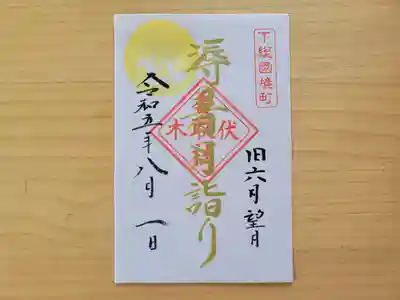 下総國境町
旧六月望月
溽暑月詣り
伏木
令和五年八月一日